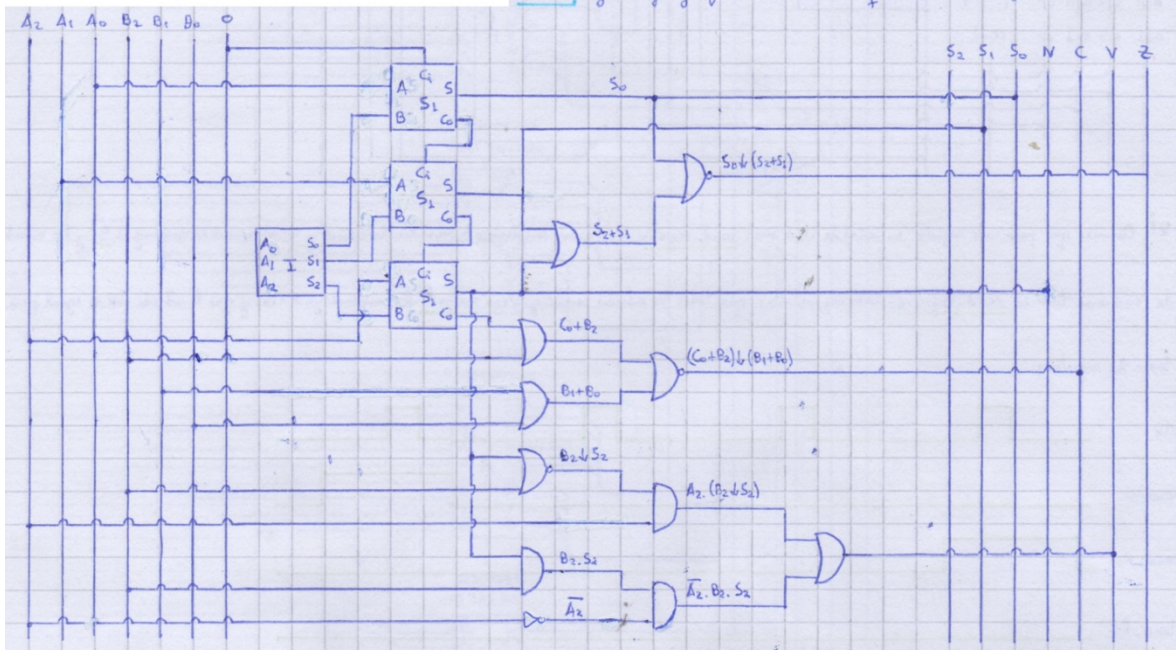 A2 A1 A0 B2 B1 B0 0
S2 S1 S0 N C V Z
Ci
A S
S1
B C0
S0
Ci
A S
S1
B C0
S0↓(S2+S1)
S2+S1
A0 S0
A1 I S1
A2 S2
Ci
A S
S1
B C0
C0+B2
(C0+B2)↓(B1+B0)
B1+B0
B2↓S2
A2.(B2↓S2)
B2.S2
A̅2.B2.S2
A̅2